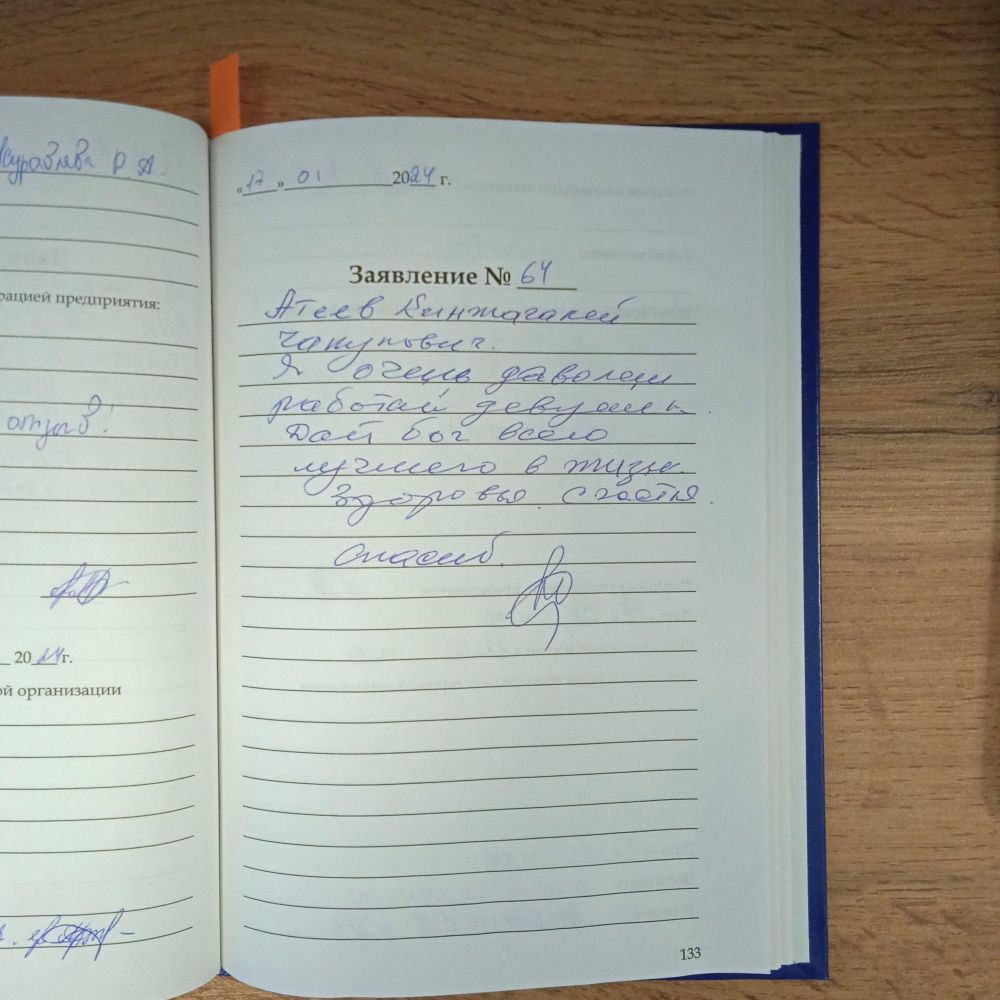 Журавлева Р. А.
рацией предприятия:
отзыв!
2024 г.
ой организации
«17» 01 2024 г.
Заявление № 64
Атеев
Я очень даволен
работай девушек.
Дай бог всего
лучшего в жизн
Здоровья счастья.
спасиб.
133